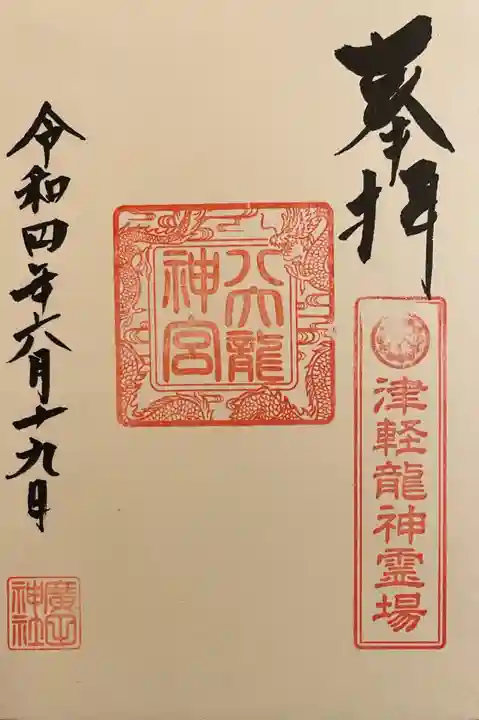 奉拝
津軽龍神霊場
八大龍
神宮
令和四年六月十九日
廣田
神社